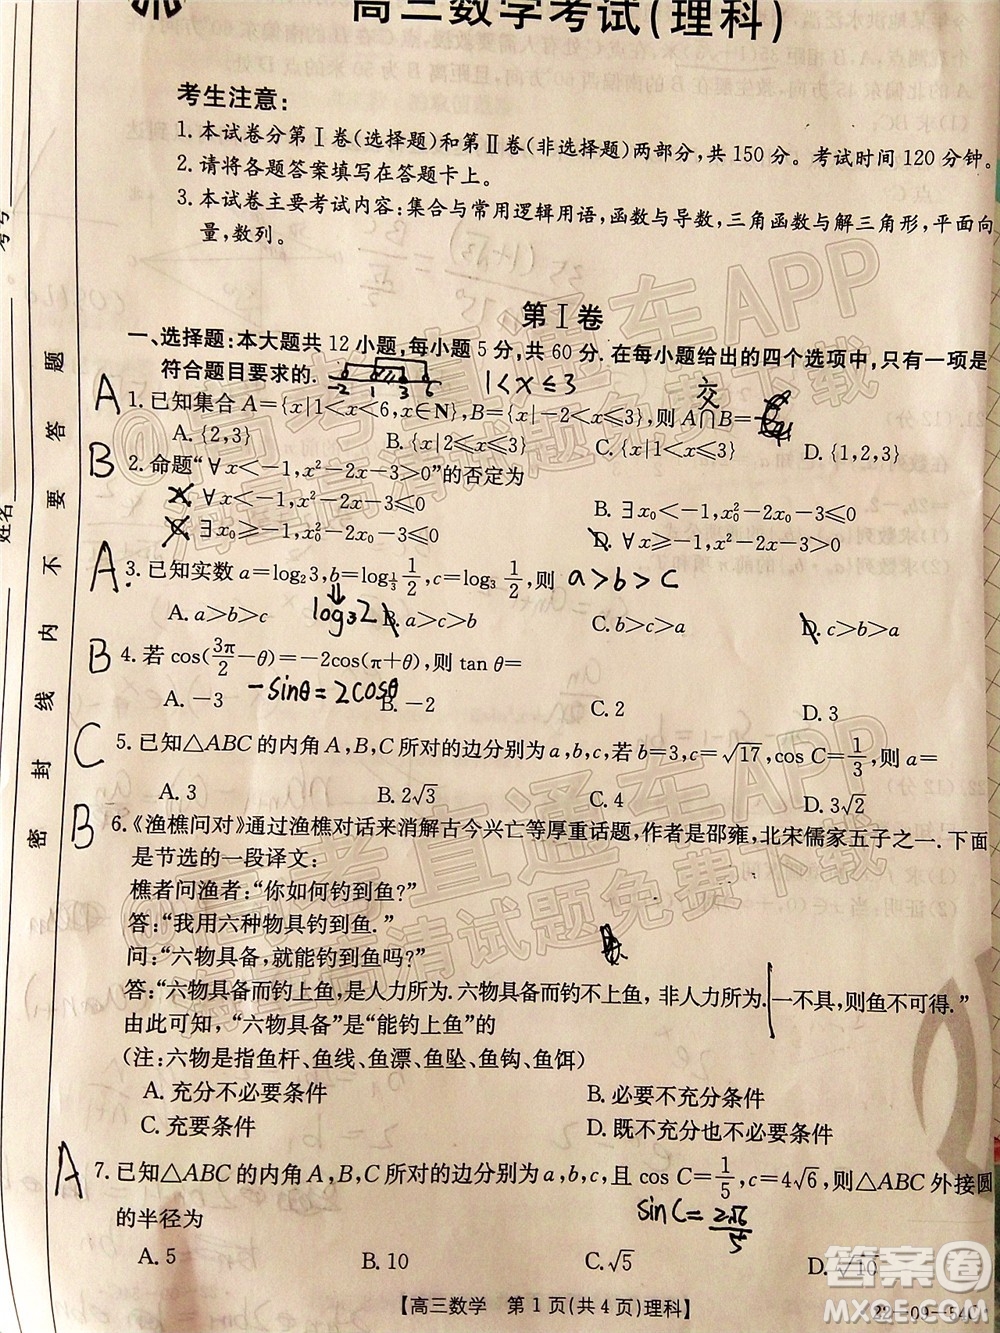 高三数学考试(理科)
考生注意:
1. 本试卷分第Ⅰ卷(选择题)和第Ⅱ卷(非选择题)两部分,共 150 分。考试时间 120 分钟。
2. 请将各题答案填写在答题卡上。
3. 本试卷主要考试内容:集合与常用逻辑用语,函数与导数,三角函数与解三角形,平面向
量,数列。
第Ⅰ卷
一、选择题:本大题共 12 小题,每小题 5 分,共 60 分.在每小题给出的四个选项中,只有一项是
符合题目要求的.
-2 1 3 6
1<x≤3
交
A
1. 已知集合 A={x|1<x<6,x∈N},B={x|-2<x≤3},则 A∩B=
A. {2,3} B. {x|2≤x≤3} C. {x|1<x≤3} D. {1,2,3}
B
2. 命题“∀x<-1,x²-2x-3>0”的否定为
A. ∀x<-1,x²-2x-3≤0 B. ∃x₀<-1,x₀²-2x₀-3≤0
C. ∃x₀≥-1,x₀²-2x₀-3≤0 D. ∀x≥-1,x²-2x-3≤0
A
3. 已知实数 a=log₂3,b=log_{1/3} 1/2,c=log₃ 1/2,则 a>b>c
log₃2
A. a>b>c B. a>c>b C. b>c>a D. c>b>a
B
4. 若 cos(3π/2-θ)=-2cos(π+θ),则 tan θ=
-sinθ=2cosθ
A. -3 B. -2 C. 2 D. 3
C
5. 已知△ABC 的内角 A,B,C 所对的边分别为 a,b,c,若 b=3,c=√17,cos C=1/3,则 a=
A. 3 B. 2√3 C. 4 D. 3√2
B
6.《渔樵问对》通过渔樵对话来消解古今兴亡等厚重话题,作者是邵雍,北宋儒家五子之一.下面
是节选的一段译文:
樵者问渔者:“你如何钓到鱼?”
答:“我用六种物具钓到鱼.”
问:“六物具备,就能钓到鱼吗?”
答:“六物具备而钓上鱼,是人力所为.六物具备而钓不上鱼,非人力所为.一不具,则鱼不可得.”
由此可知,“六物具备”是“能钓上鱼”的
(注:六物是鱼杆、鱼线、鱼漂、鱼坠、鱼钩、鱼饵)
A. 充分不必要条件 B. 必要不充分条件
C. 充要条件 D. 既不充分也不必要条件
A
7. 已知△ABC 的内角 A,B,C 所对的边分别为 a,b,c,且 cos C=1/5,c=4√6,则△ABC 外接圆
的半径为
sin C=2√6/5
A. 5 B. 10 C. √5 D. √10
【高三数学 第 1 页(共 4 页)理科】
22-09-54C
密 封 线 内 不 要 答 题
姓名
考号
@高考直通车APP
海量高清试题免费下载
@高考直通车APP
海量高清试题免费下载
答案圈
MXQE.COM